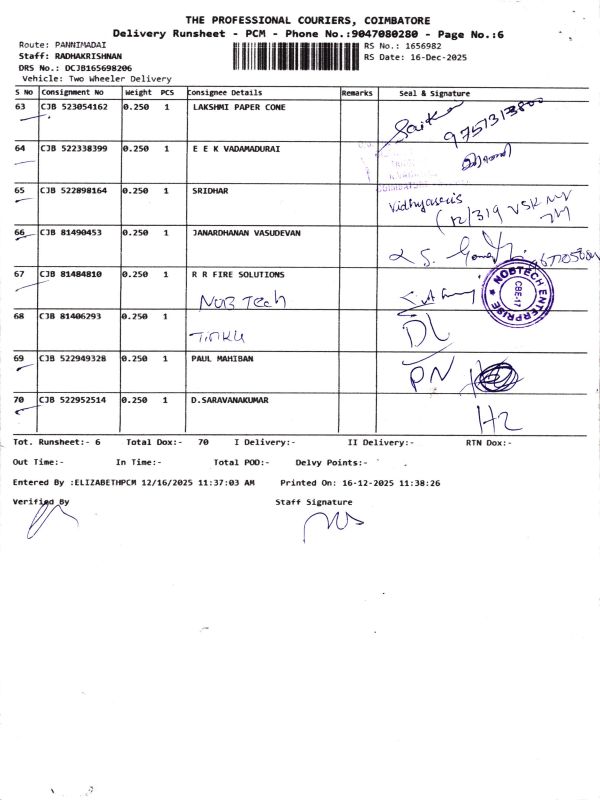 THE PROFESSIONAL COURIERS, COIMBATORE
Delivery Runsheet - PCM - Phone No.:9047080280 - Page No.:6
Route: PANNIMADAI
RS No.: 1656982
Staff: RADHAKRISHNAN
RS Date: 16-Dec-2025
DRS No.: DCJB165698206
Vehicle: Two Wheeler Delivery
S No Consignment No Weight PCS Consignee Details Remarks Seal & Signature
63 CJB 523054162 0.250 1 LAKSHMI PAPER CONE
9751313800
64 CJB 522338399 0.250 1 E E K VADAMADURAI
65 CJB 522898164 0.250 1 SRIDHAR
12/319 VSK
66 CJB 81490453 0.250 1 JANARDHANAN VASUDEVAN
67 CJB 81484810 0.250 1 R R FIRE SOLUTIONS
NOB Tech
NOBTECH ENTERPRISE
CBE-17
68 CJB 81406293 0.250 1
TINKU
DL
69 CJB 522949328 0.250 1 PAUL MAHIBAN
PN
70 CJB 522952514 0.250 1 D.SARAVANAKUMAR
H2
Tot. Runsheet:- 6 Total Dox:- 70 I Delivery:- II Delivery:- RTN Dox:-
Out Time:- In Time:- Total POD:- Delvy Points:-
Entered By :ELIZABETHPCM 12/16/2025 11:37:03 AM Printed On: 16-12-2025 11:38:26
Verified By Staff Signature